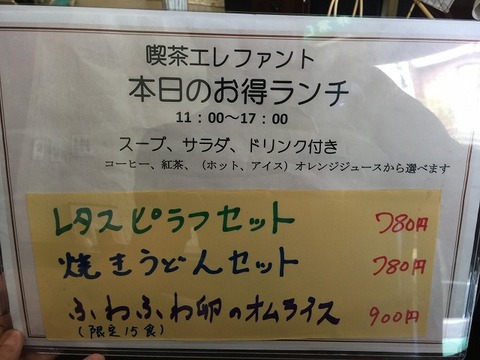 喫茶エレファント
本日のお得ランチ
11：00～17：00
スープ、サラダ、ドリンク付き
コーヒー、紅茶、（ホット、アイス）オレンジジュースから選べます
レタスピラフセット 780円
焼きうどんセット 780円
ふわふわ卵のオムライス 900円
(限定15食)